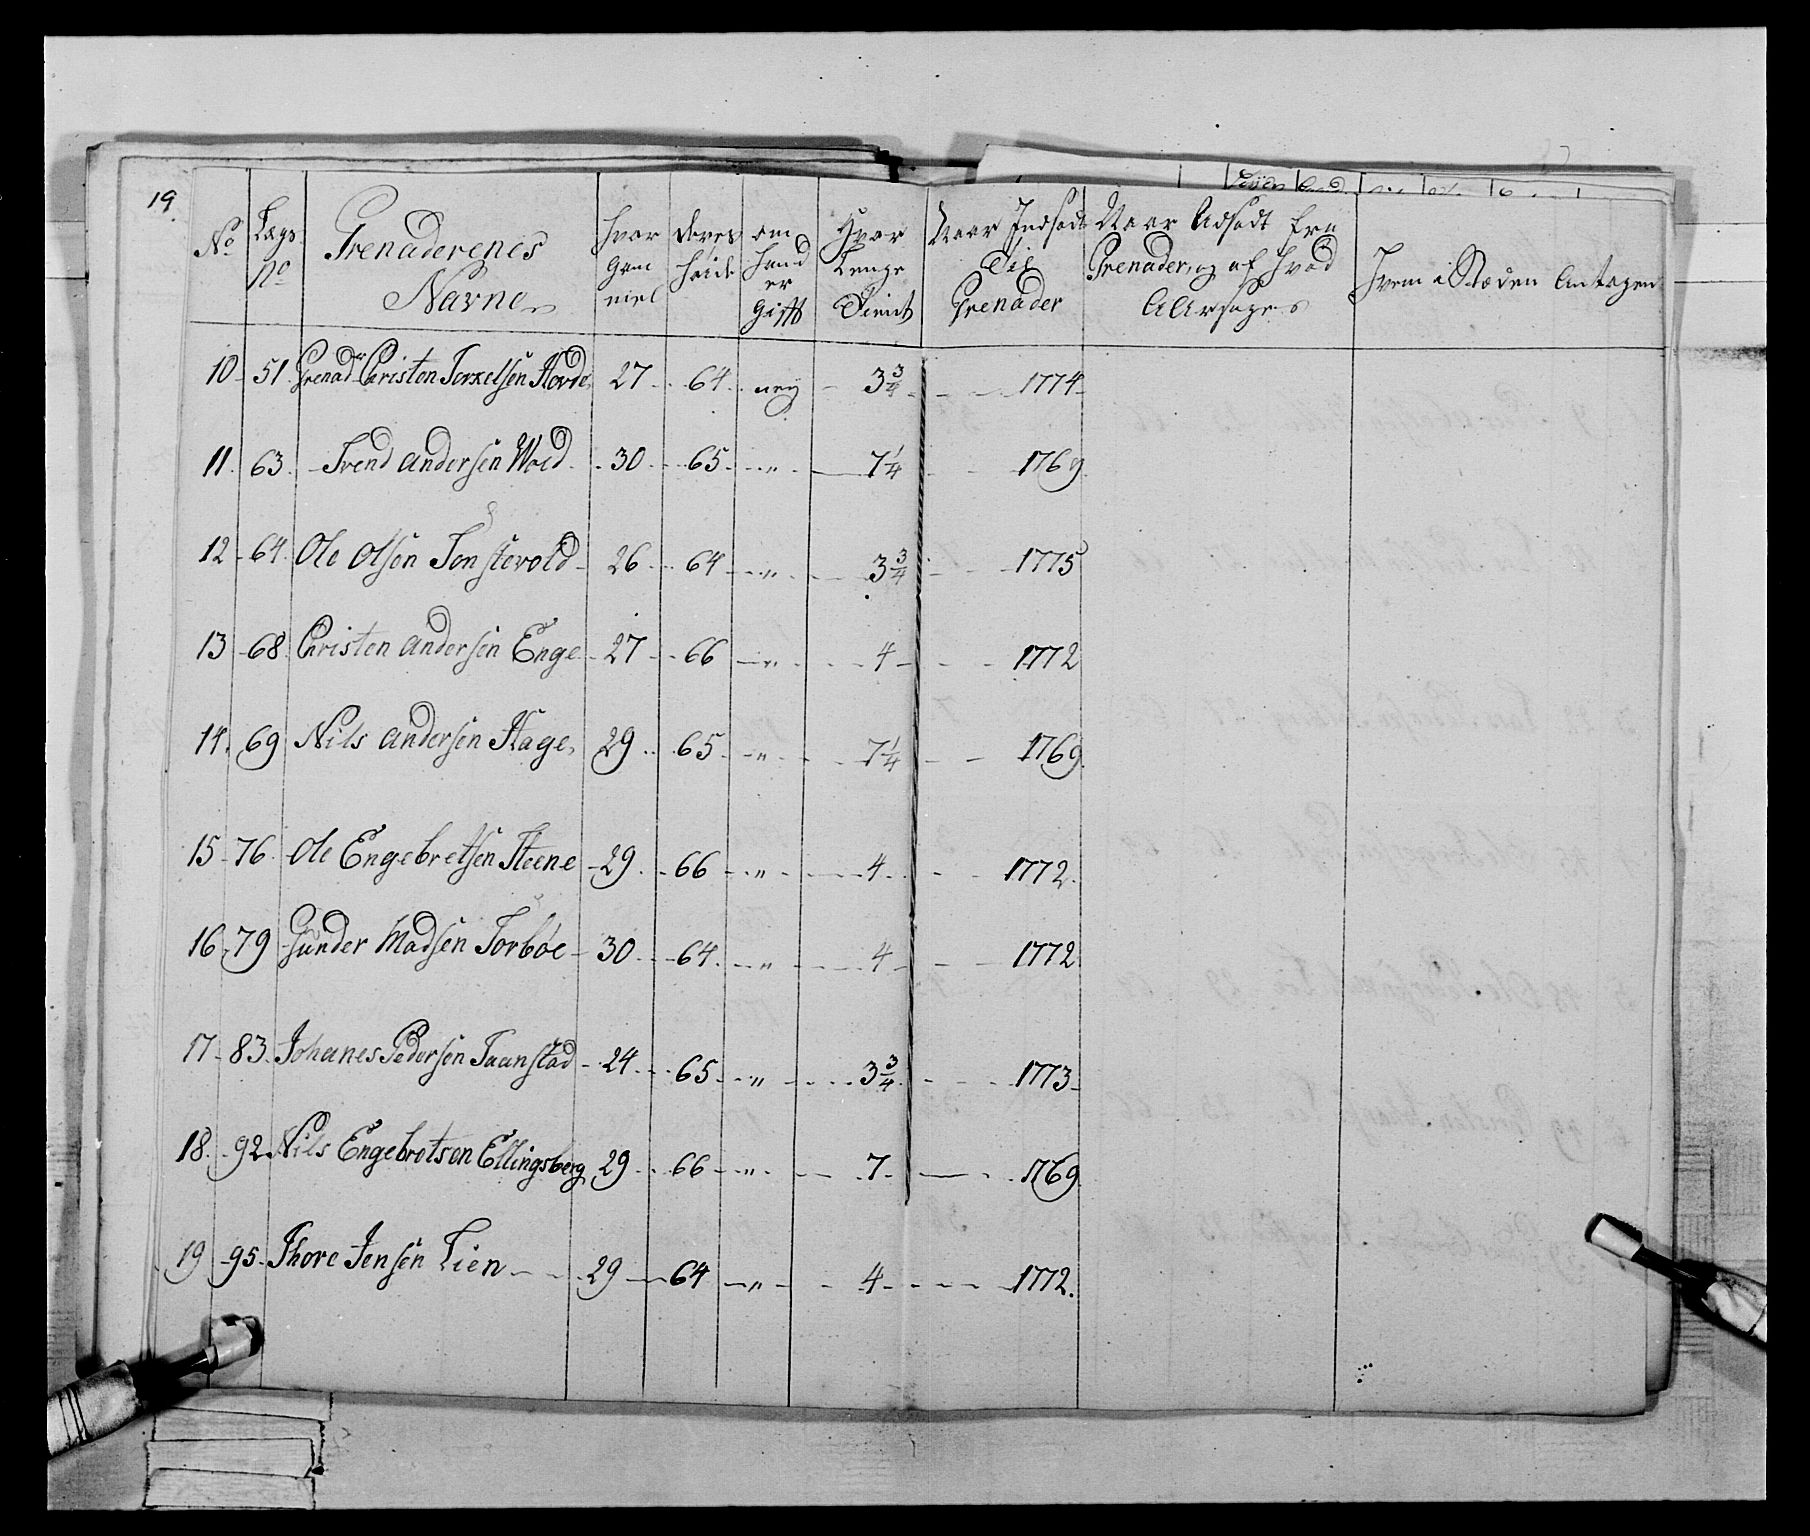 19.
No | Lægs No | Grenaderenes Navne | Hvor Gam mel | Deres Høide | om hand er Gifft | Hvor Lenge Tient | Naar Indsadt Til Grenader | Naar Udsadt fra Grenader, og af Hvad AArsager | Hvem i Stæden Antagen
10 - 51. Grenadr Christen Torkelsen Hovde 27 - - 64 - . ney - 3 3/4 - - 1774 -
11. 63. - Svend Andersen Wold - . 30 - . 65 - - " - 7 1/4 - 1769
12 - 64. Ole Olsen Tonstevold - 26 - . 64 - - " - - 3 3/4 - - 1775
13 - 68. Christen Andersen Enge - 27 - . 66 - " - - - 4 - - - 1772
14. 69 Nils Andersen Hage, 29 . . 65 . - " - - - 7 1/4 - - 1769.
15 - 76. Ole Engebretsen Steene - 29 . - 66 - - " - - - 4 . - - 1772.
16 - 79 Gunder Madsen Torbøe - 30 . - 64. - - " - - 4 - - 1772
17 - 83. Johanes Pedersen Taanstad - 24 . . . 65 - - " - - - 3 3/4 . - - 1773 -
18. - 92. Nils Engebretsen Ellingsberg 29 - . 66 - " - . - - 7. - - . 1769.
19 - 95. Thore Jensen Lien - - 29 - 64 - " - - 4 - - - 1772.